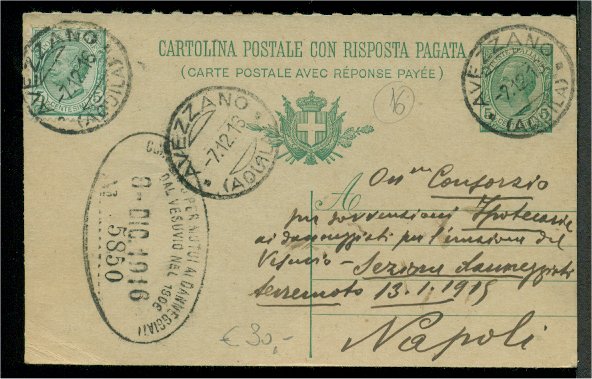 CARTOLINA POSTALE CON RISPOSTA PAGATA
(CARTE POSTALE AVEC RÉPONSE PAYÉE)
AVEZZANO
(AQUILA)
7.12.16
AVEZZANO
(AQUILA)
7.12.16
AVEZZANO
(AQUILA)
7.12.16
16
A
On.mo Consorzio
per sovvenzioni Ipotecarie
ai danneggiati per l'eruzione del
Vesuvio - Sezione danneggiati
terremoto 13.1.1915
Napoli
PER MUTUI AI DANNEGGIATI
DAL VESUVIO NEL 1906
9-DIC.1916
5850
€ 30,-